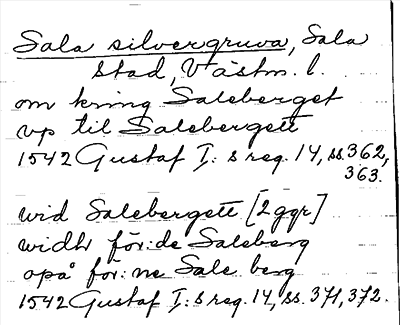 Sala silvergruva, Sala
stad, Västm. l.
om kring Saleberget
vp til Salebergett
1542 Gustaf I: s reg. 14, ss. 362,
363.
wid Salebergett [2 ggr]
widhr för:de Saleberg
opå för:ne Sale berg
1542 Gustaf I: s reg. 14, ss. 371, 372.